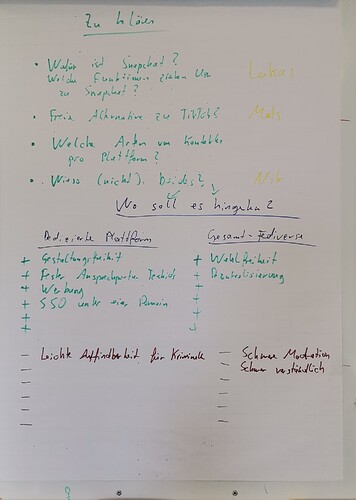 Zu klären
• Wofür ist Snapchat?
Welche Funktionen ziehen User
zu Snapchat?
Lukas
• Freie Alternative zu TikTok?
Mats
• Welche Arten von Kontakten
pro Plattform?
• Wieso (nicht) beides?
Wo soll es hingehen?
Dedizierte Plattform
Gesamt-Fediverse
+ Gestaltungsfreiheit
+ Wahlfreiheit
+ Feste Ansprechpartner
+ Dezentralisierung
+ Werbung
+ SSO unter einer Domain
- Leichte Auffindbarkeit für Kriminelle
- Schwere Moderation
- Schwer verständlich